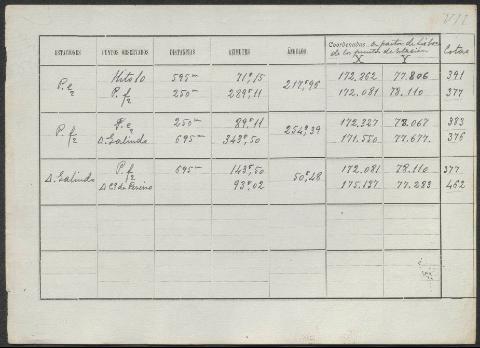 VII
ESTACIONES PUNTOS OBSERVADOS DISTANCIAS AZIMUTES ÁNGULOS Coordenadas a partir de
de los puntos de estación Cotas
X Y
P. e2 Hito 10 595m 71g,15 217g,96 172.262 77.806 391
P. f2 250m 289g,11 172.081 78.110 377
P. f2 P. e2 250m 89g,11 254g,39 172.327 78.067 383
Δ. Galindo 695m 343g,50 171.550 77.677 376
Δ. Galindo P. f2 695m 143g,50 50g,48 172.081 78.110 377
93g,02 175.137 77.283 462